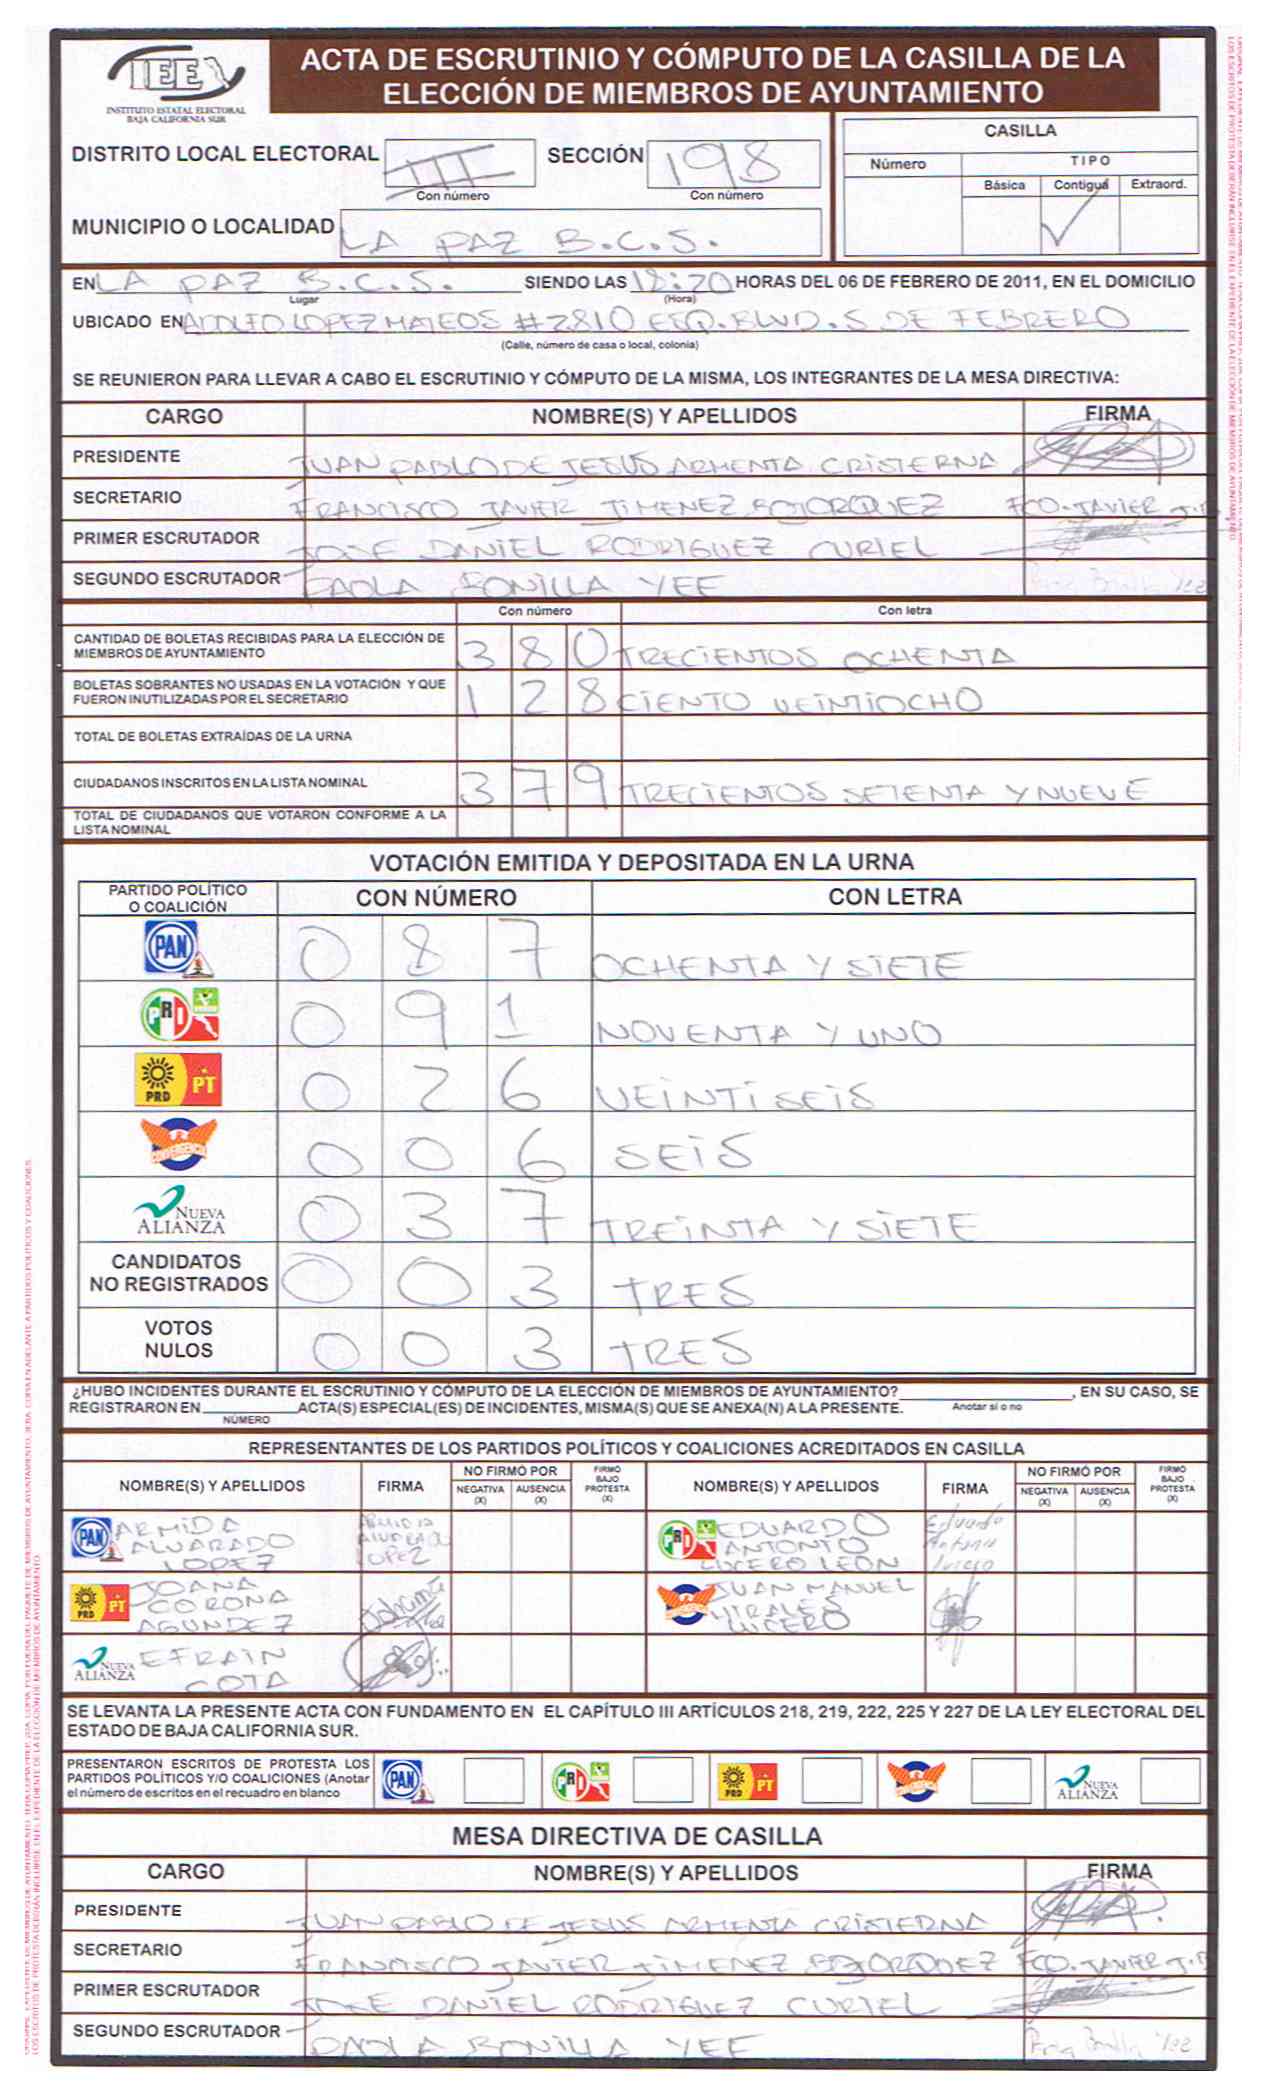 IEEX
INSTITUTO ESTATAL ELECTORAL
BAJA CALIFORNIA SUR
ACTA DE ESCRUTINIO Y CÓMPUTO DE LA CASILLA DE LA
ELECCIÓN DE MIEMBROS DE AYUNTAMIENTO
DISTRITO LOCAL ELECTORAL III SECCIÓN 198
Con número Con número
MUNICIPIO O LOCALIDAD LA PAZ B.C.S.
CASILLA
Número TIPO
Básica Contigua Extraord.
EN LA PAZ B.C.S. SIENDO LAS 18:20 HORAS DEL 06 DE FEBRERO DE 2011, EN EL DOMICILIO
Lugar (Hora)
UBICADO EN ADOLFO LOPEZ MATEOS #2810 ESQ. BLVD. 5 DE FEBRERO
(Calle, número de casa o local, colonia)
SE REUNIERON PARA LLEVAR A CABO EL ESCRUTINIO Y CÓMPUTO DE LA MISMA, LOS INTEGRANTES DE LA MESA DIRECTIVA:
CARGO NOMBRE(S) Y APELLIDOS FIRMA
PRESIDENTE JUAN PABLO DE JESUS ARMENTA CRISTERNA
SECRETARIO FRANCISCO JAVIER JIMENEZ BOJORQUEZ FCO. JAVIER J.B
PRIMER ESCRUTADOR JOSE DANIEL RODRIGUEZ CURIEL
SEGUNDO ESCRUTADOR PAOLA BONILLA YEE
Con número Con letra
CANTIDAD DE BOLETAS RECIBIDAS PARA LA ELECCIÓN DE
MIEMBROS DE AYUNTAMIENTO 3 8 0 TRECIENTOS OCHENTA
BOLETAS SOBRANTES NO USADAS EN LA VOTACIÓN Y QUE
FUERON INUTILIZADAS POR EL SECRETARIO 1 2 8 CIENTO VEINTIOCHO
TOTAL DE BOLETAS EXTRAÍDAS DE LA URNA
CIUDADANOS INSCRITOS EN LA LISTA NOMINAL 3 7 9 TRECIENTOS SETENTA Y NUEVE
TOTAL DE CIUDADANOS QUE VOTARON CONFORME A LA
LISTA NOMINAL
VOTACIÓN EMITIDA Y DEPOSITADA EN LA URNA
PARTIDO POLÍTICO
O COALICIÓN CON NÚMERO CON LETRA
PAN 0 8 7 OCHENTA Y SIETE
PRI 0 9 1 NOVENTA Y UNO
PRD PT 0 2 6 VEINTISEIS
CONVERGENCIA 0 0 6 SEIS
NUEVA ALIANZA 0 3 7 TREINTA Y SIETE
CANDIDATOS
NO REGISTRADOS 0 0 3 TRES
VOTOS
NULOS 0 0 3 TRES
¿HUBO INCIDENTES DURANTE EL ESCRUTINIO Y CÓMPUTO DE LA ELECCIÓN DE MIEMBROS DE AYUNTAMIENTO? , EN SU CASO, SE
REGISTRARON EN ACTA(S) ESPECIAL(ES) DE INCIDENTES, MISMA(S) QUE SE ANEXA(N) A LA PRESENTE. Anotar sí o no
NÚMERO
REPRESENTANTES DE LOS PARTIDOS POLÍTICOS Y COALICIONES ACREDITADOS EN CASILLA
NOMBRE(S) Y APELLIDOS FIRMA NO FIRMÓ POR NEGATIVA (X) AUSENCIA (X) FIRMÓ BAJO PROTESTA (X) NOMBRE(S) Y APELLIDOS FIRMA NO FIRMÓ POR NEGATIVA (X) AUSENCIA (X) FIRMÓ BAJO PROTESTA (X)
PAN ARMIDA ALVARADO LOPEZ ARMIDA ALVARADO LOPEZ
PRI EDUARDO ANTONIO LUCERO LEON Eduardo Antonio Lucero
PRD PT JOANA CORONA AGUNDEZ
CONVERGENCIA JUAN MANUEL VIRALES LUCERO
NUEVA ALIANZA EFRAIN COTA
SE LEVANTA LA PRESENTE ACTA CON FUNDAMENTO EN EL CAPÍTULO III ARTÍCULOS 218, 219, 222, 225 Y 227 DE LA LEY ELECTORAL DEL
ESTADO DE BAJA CALIFORNIA SUR.
PRESENTARON ESCRITOS DE PROTESTA LOS
PARTIDOS POLÍTICOS Y/O COALICIONES (Anotar
el número de escritos en el recuadro en blanco
PAN PRI PRD PT CONVERGENCIA NUEVA ALIANZA
MESA DIRECTIVA DE CASILLA
CARGO NOMBRE(S) Y APELLIDOS FIRMA
PRESIDENTE JUAN PABLO DE JESUS ARMENTA CRISTERNA
SECRETARIO FRANCISCO JAVIER JIMENEZ BOJORQUEZ FCO. JAVIER J.B
PRIMER ESCRUTADOR JOSE DANIEL RODRIGUEZ CURIEL
SEGUNDO ESCRUTADOR PAOLA BONILLA YEE Bonilla Yee